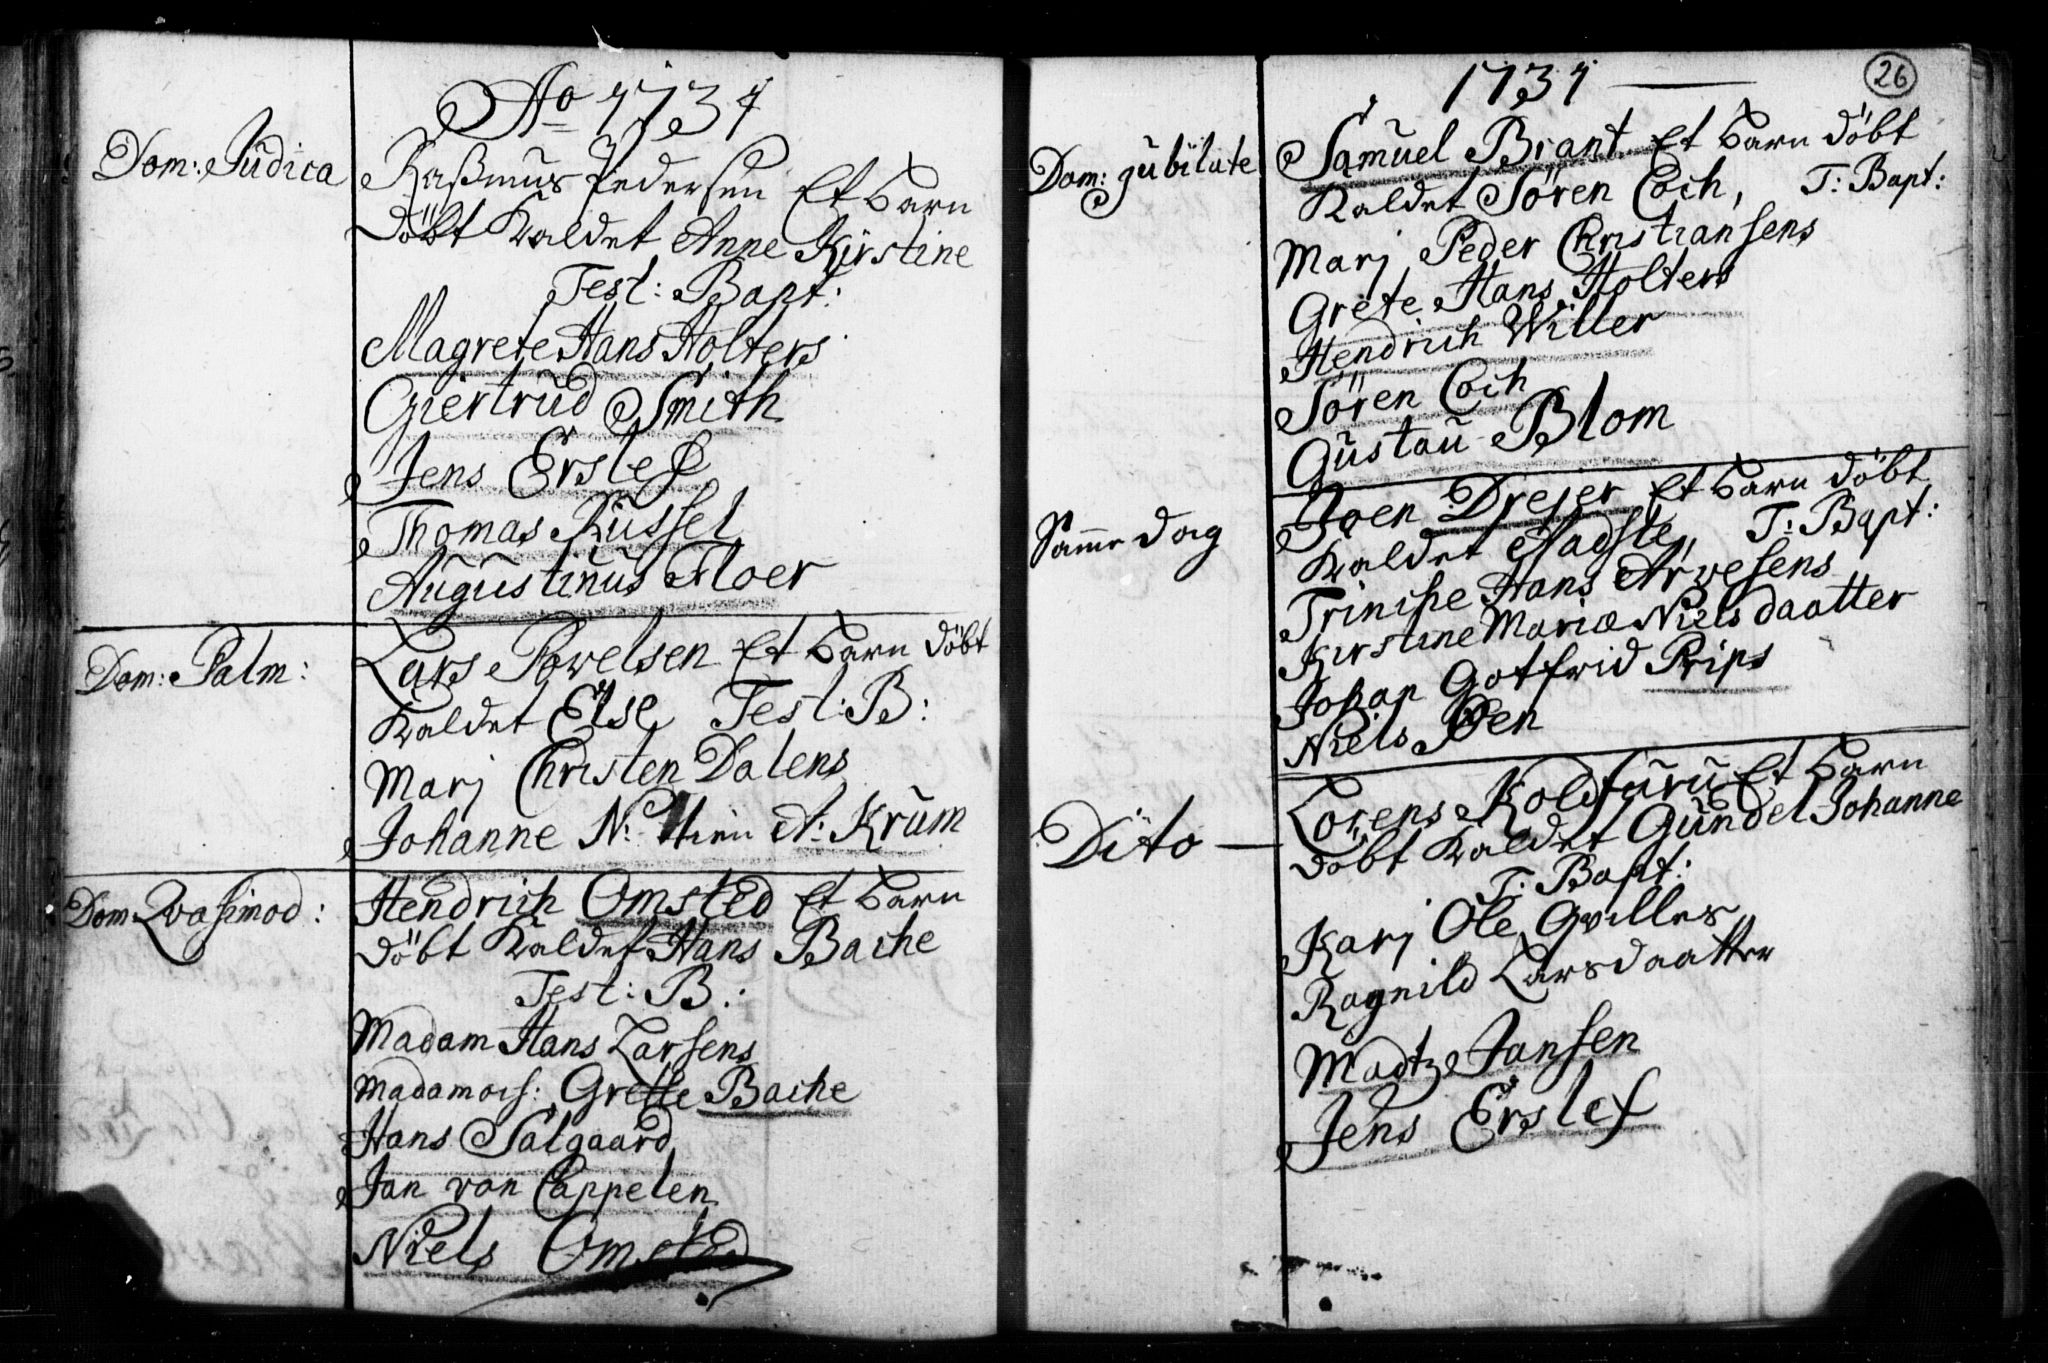 Ao 1737
Dom: Judica
Raßmus Pedersen Et Barn
döbt Kaldet Anne Kirstine
Test: Bapt:
Magrete Hans Holters
Giertrud Smith
Jens Erslef
Thomas Russel
Augustinus Floer
Dom: Palm:
Lars Povelsen Et Barn döbt
Kaldet Else, Test: B:
Marj Christen Dalens
Johanne N: A: Krum
Dom Qvasimod:
Hendrich Omsted Et Barn
döbt Kaldet Hans Bache
Test: B:
Madam Hans Larsens
Madamois: Grette Bache
Hans Salgaard
Jan van Cappelen
Niels Omsted
1737
26
Dom: jubilate
Samuel Brant Et Barn döbt
Kaldet Sören Coch, T: Bapt:
Marj Peder Christiansens
Grete Hans Holters
Hendrich Willer
Sören Coch
Gustau Blom
Samme dag
Joen Drejer Et Barn döbt
Kaldet T: Bapt:
Trinche Hans Arvesens
Kirstine Maria Niels daatter
Johan Gotfrid Prips
Niels
Dito —
Lorens Koldfuru Et Barn
döbt Kaldet Gundel Johanne
T: Bapt:
Karj Ole Qvilles
Ragnild Larsdaatter
Madtz Jansen
Jens Erslef